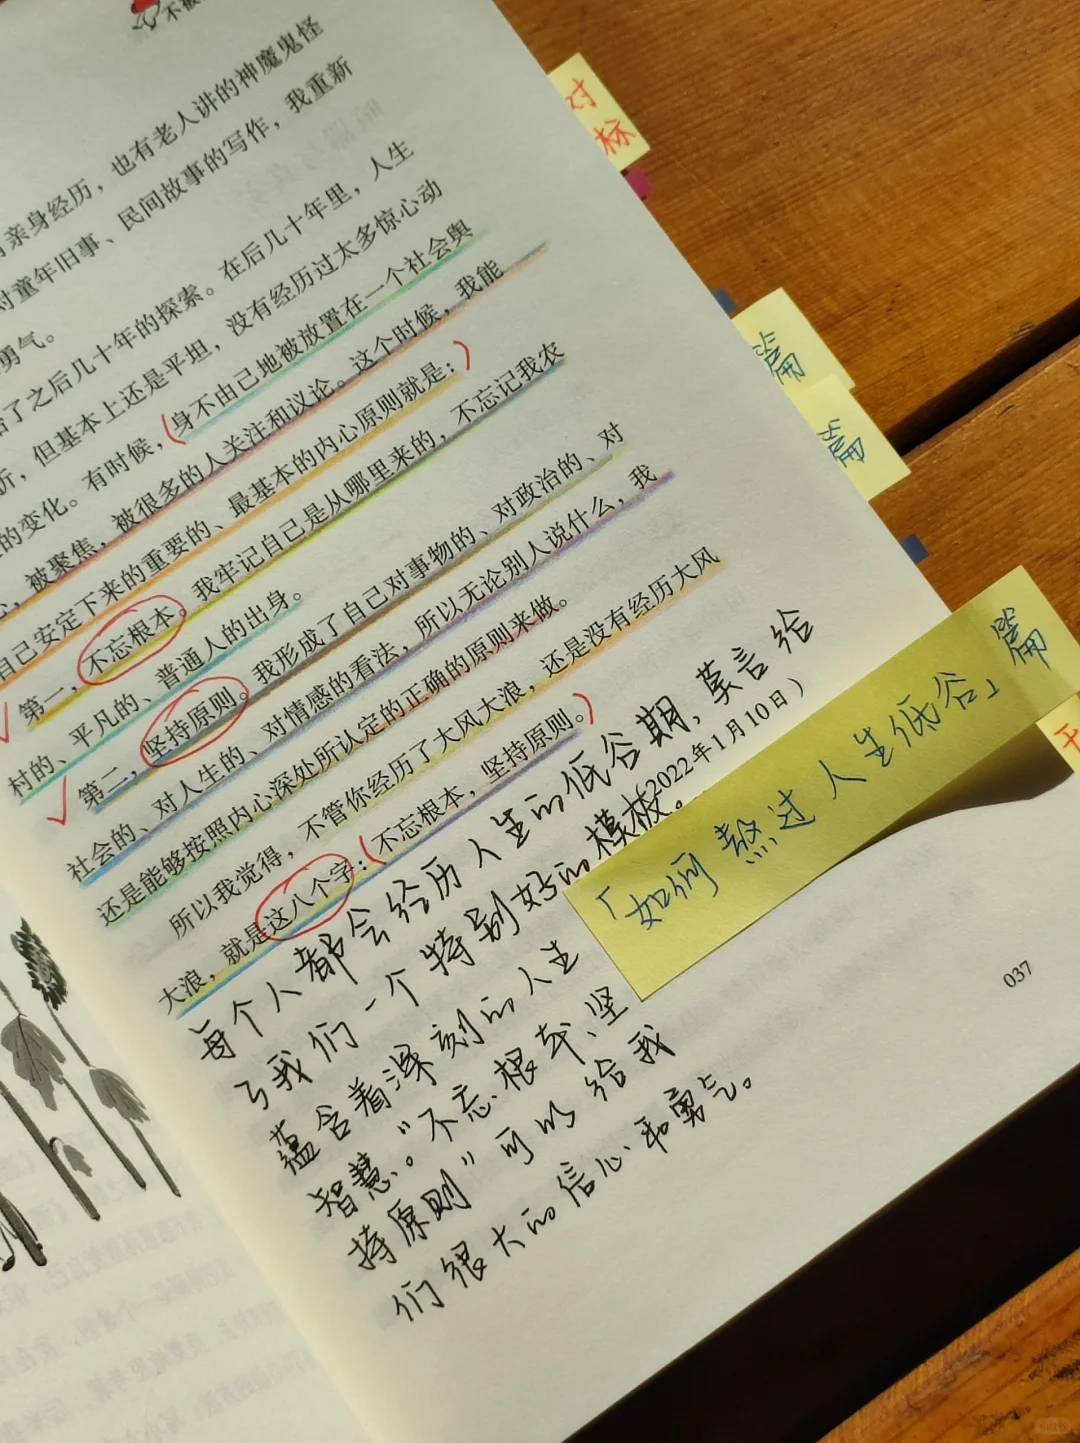 不被
亲身经历，也有老人讲的神魔鬼怪
对童年旧事、民间故事的写作，我重新
勇气。
了之后几十年的探索。在后几十年里，人生
折，但基本上还是平坦，没有经历过太多惊心动
的变化。有时候，身不由己地被放置在一个社会舆
心，被聚焦，被很多的人关注和议论。这个时候，我能
自己安定下来的重要的、最基本的内心原则就是：
第一，不忘根本。我牢记自己是从哪里来的，不忘记我农
村的、平凡的、普通人的出身。
第二，坚持原则。我形成了自己对事物的、对政治的、对
社会的、对人生的、对情感的看法，所以无论别人说什么，我
还是能够按照内心深处所认定的正确的原则来做。
所以我觉得，不管你经历了大风大浪，还是没有经历大风
大浪，就是这八个字：不忘根本，坚持原则。
2022年1月10日）
每个人都会经历人生的低谷期，莫言给
了我们一个特别好的模板。
蕴含着深刻的人生
智慧。“不忘根本、坚
持原则”可以给我
们很大的信心和勇气。
「如何熬过人生低谷」篇
对标
篇
篇
037
小红书